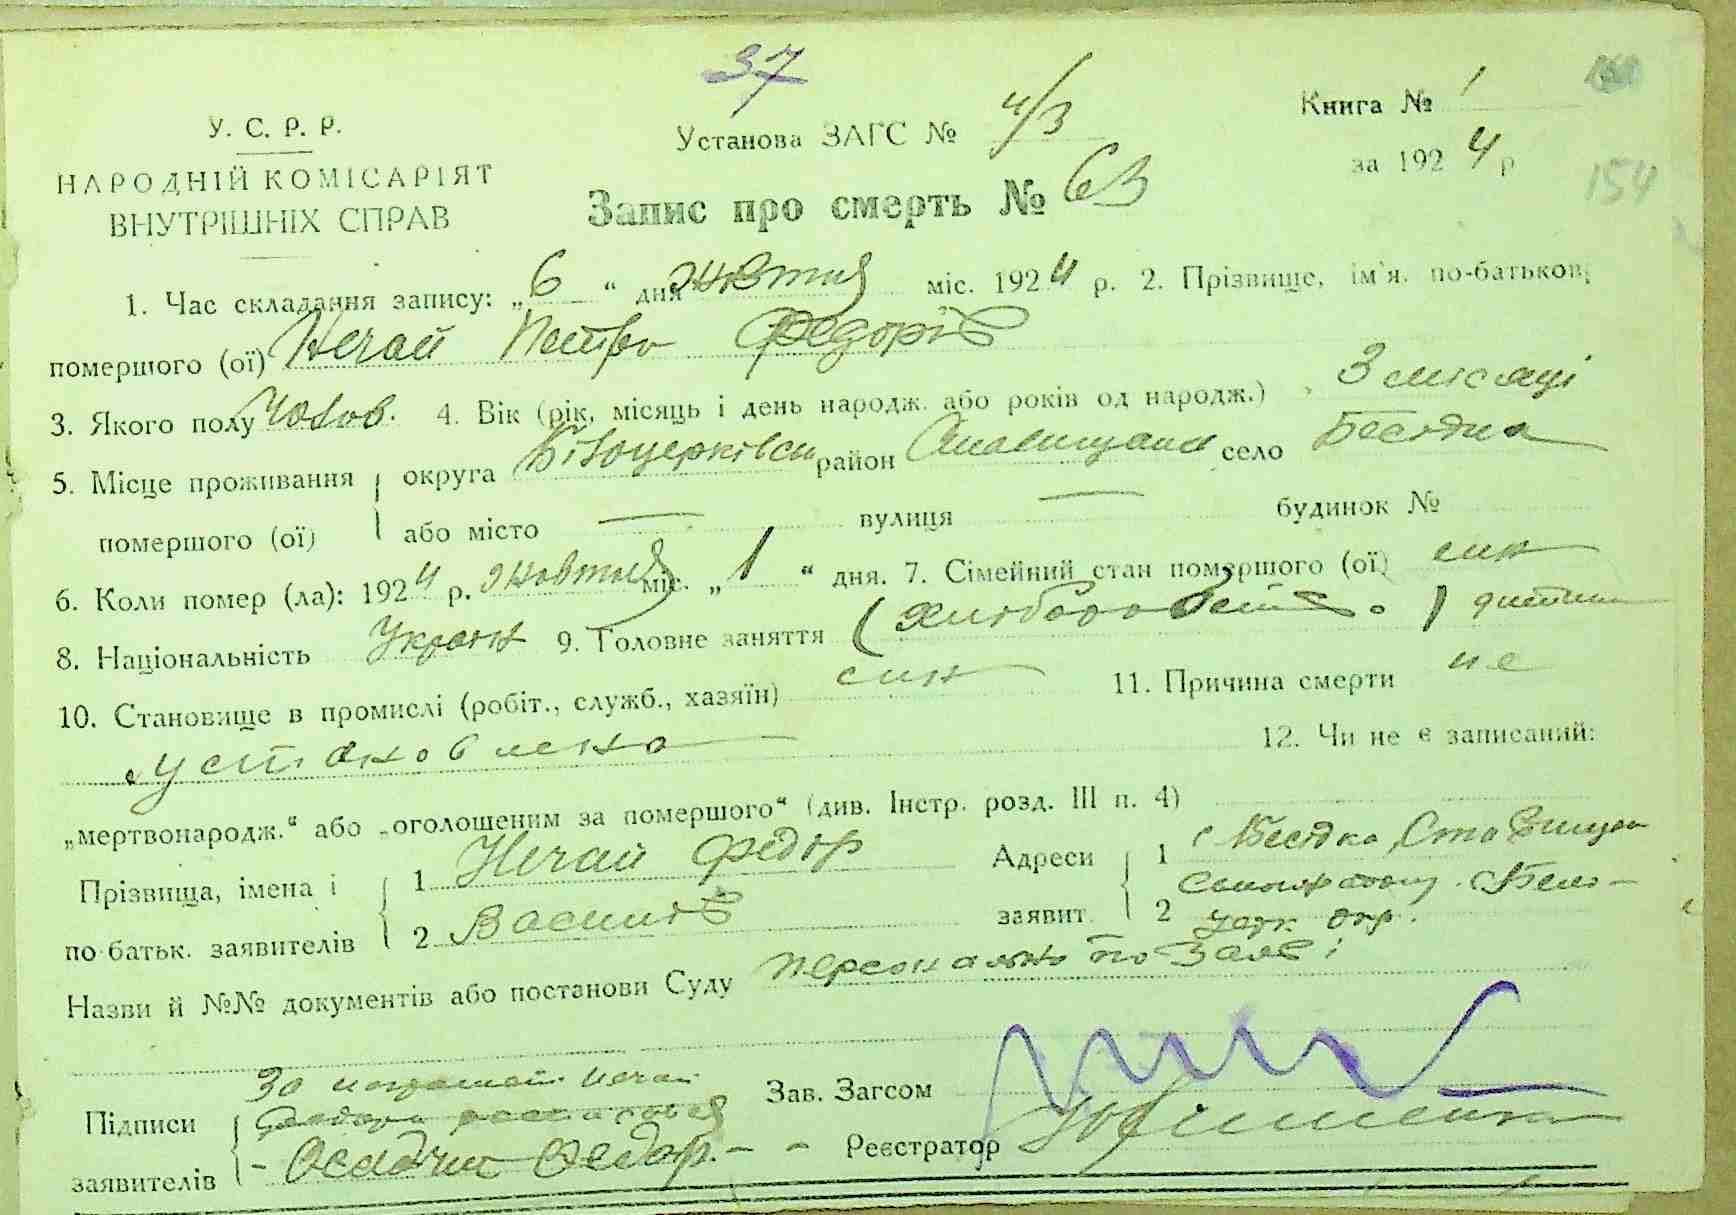 37
У. С. Р. Р.
НАРОДНІЙ КОМІСАРІЯТ
ВНУТРІШНІХ СПРАВ
Установа ЗАГС № 4/3
Книга № 1
за 1924 р
154
Запис про смерть № 63
1. Час складання запису: „6“ дня жовтня міс. 1924 р. 2. Прізвище, ім'я. по-батькові
помершого (ої) Нечай Петро Федорів
3. Якого полу Чолов. 4. Вік (рік, місяць і день народж. або років од народж.) 3 місяці
5. Місце проживання помершого (ої) округа Білоцерківськ район Ставищанск село Бесідка
або місто — вулиця — будинок №
6. Коли помер (ла): 1924 р. жовтня міс. „1“ дня. 7. Сімейний стан помершого (ої) син
8. Національність Україн 9. Головне заняття (хліборобств.) дитина
10. Становище в промислі (робіт., служб., хазяїн) син 11. Причина смерти не
установлено 12. Чи не є записаний:
„мертвонародж.“ або „оголошеним за помершого“ (див. Інстр. розд. III п. 4)
Прізвища, імена і по-батьк. заявителів 1 Нечай Федор
2 Василів
Адреси заявит. 1 с Бесідка, Ставищан
2 Бело-
церк окр.
Назви й №№ документів або постанови Суду персонально по заяві
Підписи заявителів За неграмотн. Нечая
Федора
- Осадчий Федор. - -
Зав. Загсом
Реєстратор